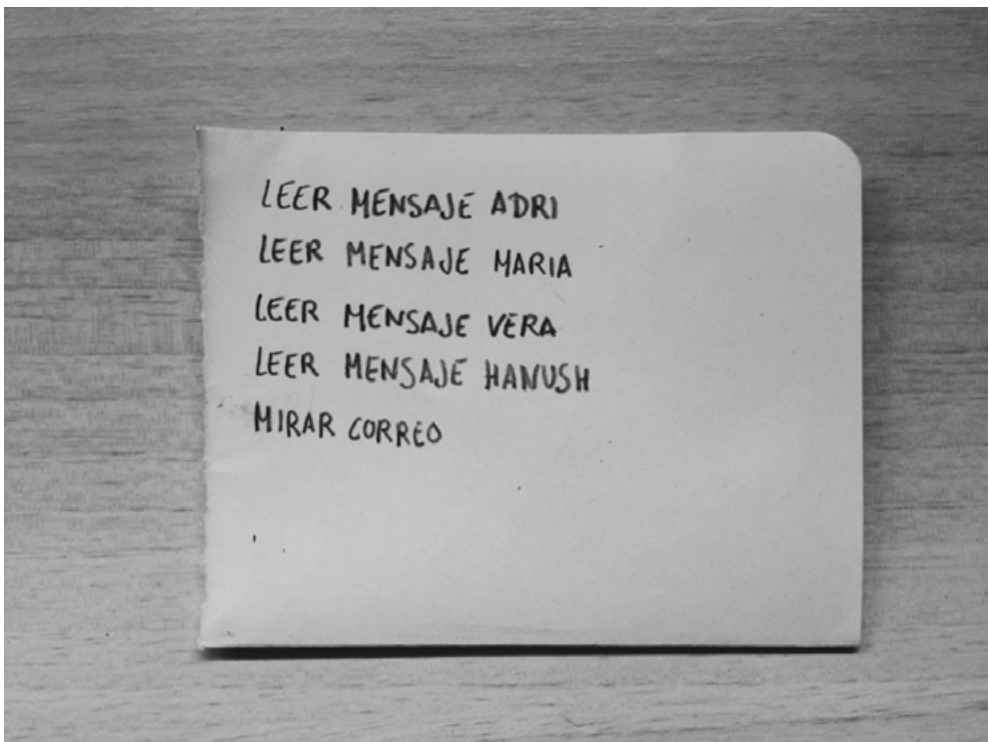 LEER MENSAJE ADRI
LEER MENSAJE MARIA
LEER MENSAJE VERA
LEER MENSAJE HANUSH
MIRAR CORREO